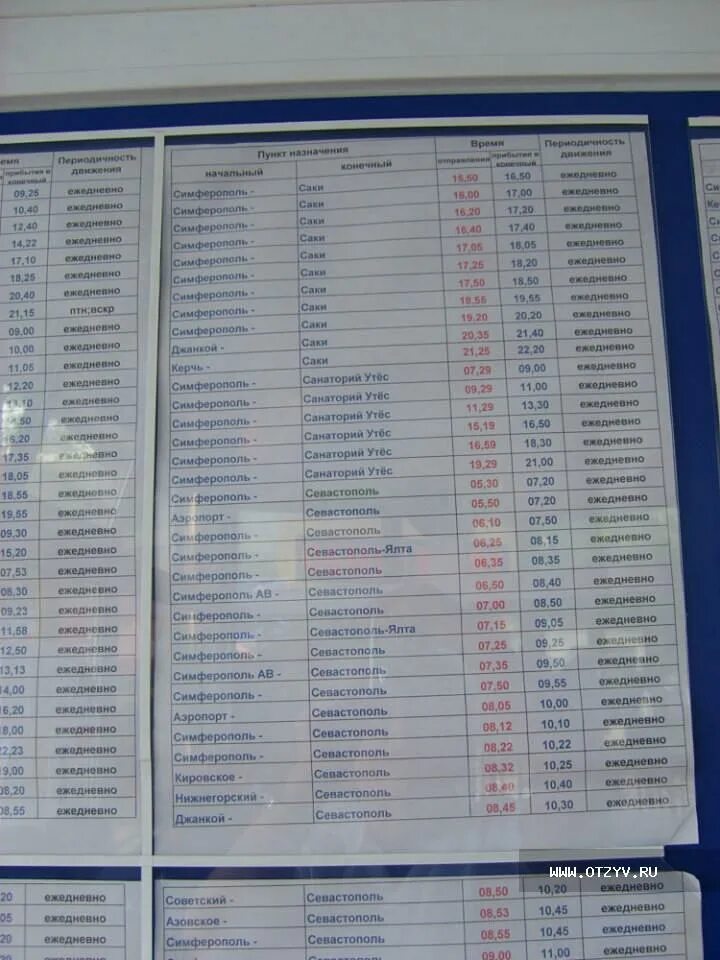 Периодичность
прибытия в движения
конечный
09,25 ежедневно
10,40 ежедневно
12,40 ежедневно
14,22 ежедневно
17,10 ежедневно
18,25 ежедневно
20,40 ежедневно
21,15 птн;вскр
09,00 ежедневно
10,00 ежедневно
11,05 ежедневно
12,20 ежедневно
ежедневно
ежедневно
ежедневно
17,35 ежедневно
18,05 ежедневно
18,55 ежедневно
19,55 ежедневно
09,30 ежедневно
15,20 ежедневно
07,53 ежедневно
08,30 ежедневно
09,23 ежедневно
11,58 ежедневно
12,50 ежедневно
13,13 ежедневно
14,00 ежедневно
16,20 ежедневно
18,00 ежедневно
22,23 ежедневно
ежедневно
08,20 ежедневно
08,55 ежедневно
Пункт назначения Время Периодичность
начальный конечный отправления прибытия в движения
конечный
Симферополь - Саки 16,50 ежедневно
Симферополь - Саки 16,00 17,00 ежедневно
Симферополь - Саки 16,20 17,20 ежедневно
Симферополь - Саки 16,40 17,40 ежедневно
Симферополь - Саки 17,05 18,05 ежедневно
Симферополь - Саки 17,25 18,20 ежедневно
Симферополь - Саки 17,50 18,50 ежедневно
Симферополь - Саки 18,55 19,55 ежедневно
Симферополь - Саки 19,20 20,20 ежедневно
Джанкой - Саки 20,35 21,40 ежедневно
Керчь - Саки 21,25 22,20 ежедневно
Симферополь - Санаторий Утёс 07,29 09,00 ежедневно
Симферополь - Санаторий Утёс 09,29 11,00 ежедневно
Симферополь - Санаторий Утёс 11,29 13,30 ежедневно
Симферополь - Санаторий Утёс 15,19 16,50 ежедневно
Симферополь - Санаторий Утёс 16,59 18,30 ежедневно
Симферополь - Санаторий Утёс 19,29 21,00 ежедневно
Симферополь - Севастополь 05,30 07,20 ежедневно
Аэропорт - Севастополь 05,50 07,20 ежедневно
Симферополь - Севастополь 06,10 07,50 ежедневно
Симферополь - Севастополь-Ялта 06,25 08,15 ежедневно
Симферополь - Севастополь 06,35 08,35 ежедневно
Симферополь АВ - Севастополь 06,50 08,40 ежедневно
Симферополь - Севастополь 07,00 08,50 ежедневно
Симферополь - Севастополь-Ялта 07,15 09,05 ежедневно
Симферополь - Севастополь 07,25 09,25 ежедневно
Симферополь АВ - Севастополь 07,35 09,50 ежедневно
Симферополь - Севастополь 07,50 09,55 ежедневно
Аэропорт - Севастополь 08,05 10,00 ежедневно
Симферополь - Севастополь 08,12 10,10 ежедневно
Симферополь - Севастополь 08,22 10,22 ежедневно
Кировское - Севастополь 08,32 10,25 ежедневно
Нижнегорский - Севастополь 08,40 10,40 ежедневно
Джанкой - Севастополь 08,45 10,30 ежедневно
WWW.OTZYV.RU
ежедневно
ежедневно
ежедневно
Советский - Севастополь 08,50 10,20 ежедневно
Азовское - Севастополь 08,53 10,45 ежедневно
Симферополь - Севастополь 08,55 10,45 ежедневно
Севастополь 09,00 11,00 ежедневно